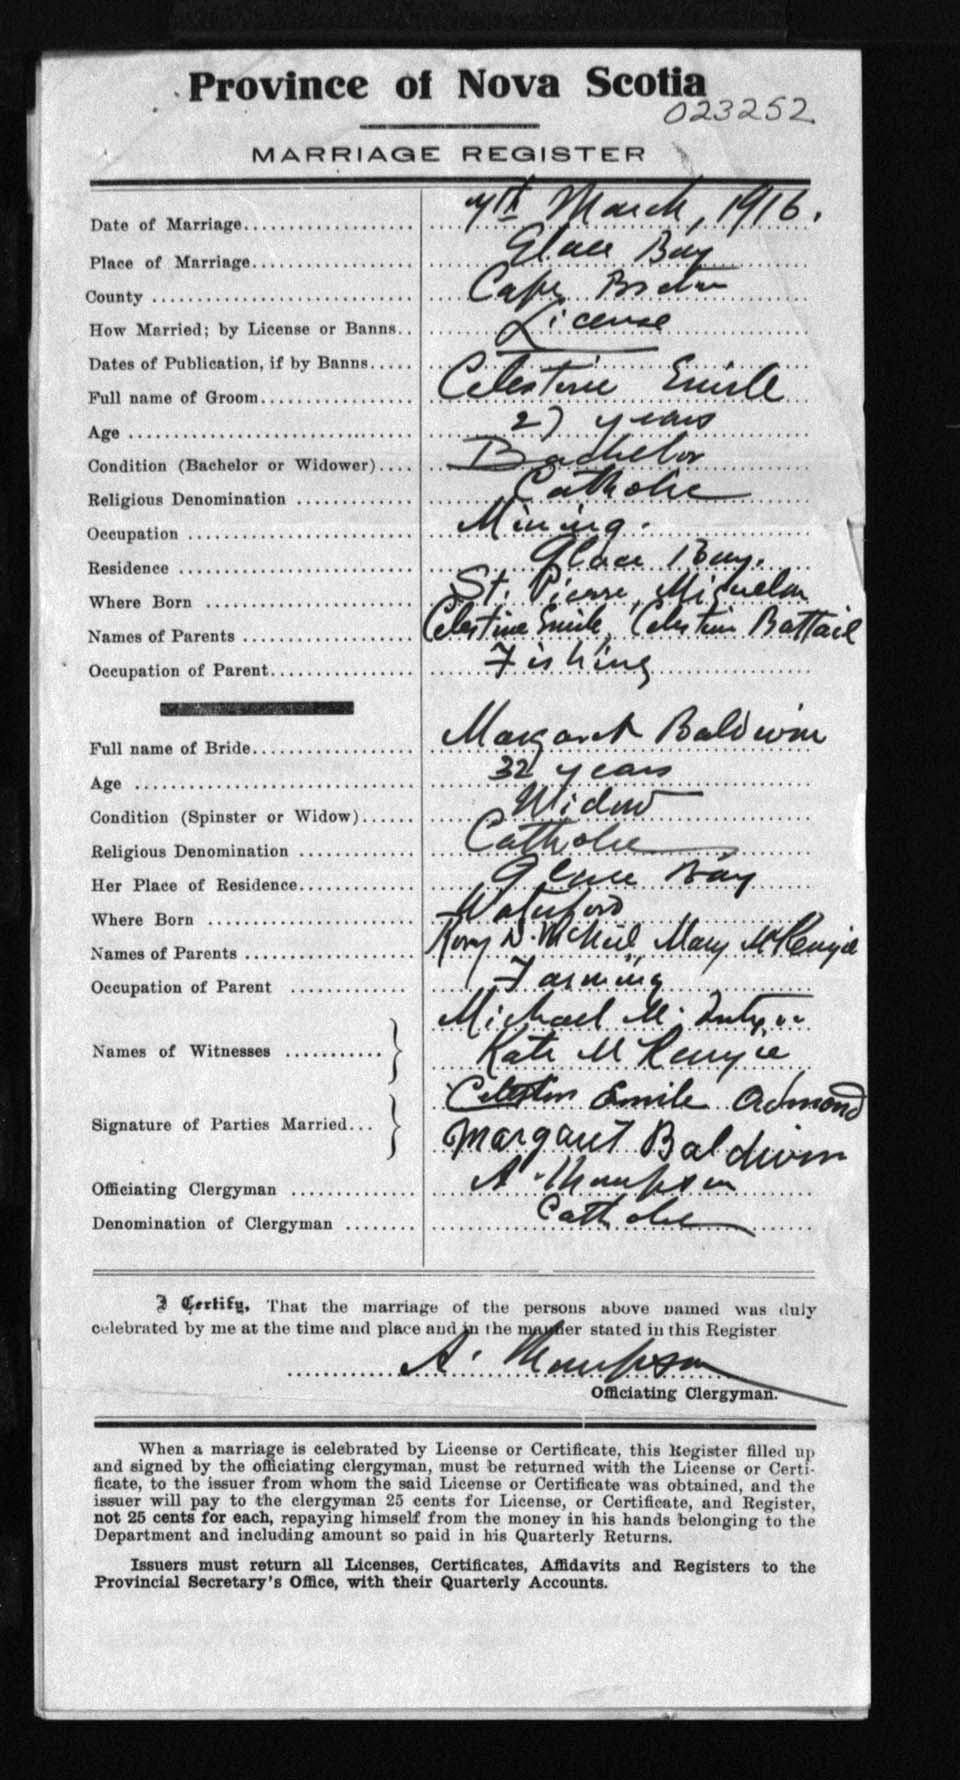 Province of Nova Scotia
023252
MARRIAGE REGISTER
Date of Marriage 7th March, 1916.
Place of Marriage Glace Bay
County Cape Breton
How Married; by License or Banns License
Dates of Publication, if by Banns
Full name of Groom Celestine Emile
Age 27 years
Condition (Bachelor or Widower) Bachelor
Religious Denomination Catholic
Occupation Mining.
Residence Glace Bay.
Where Born St. Pierre, Miquelon
Names of Parents Celestine Emile, Celestine Battail
Occupation of Parent Fishing
Full name of Bride Margaret Baldwin
Age 32 years
Condition (Spinster or Widow) Widow
Religious Denomination Catholic
Her Place of Residence Glace Bay
Where Born Waterford
Names of Parents Rory D. McNeil, Mary McKenzie
Occupation of Parent Farming
Michael
Names of Witnesses Kate McKenzie
Celestin Emile Admond
Signature of Parties Married Margaret Baldwin
Officiating Clergyman A. Thompson
Denomination of Clergyman Catholic
I Certify, That the marriage of the persons above named was duly
celebrated by me at the time and place and in the manner stated in this Register
A. Thompson
Officiating Clergyman.
When a marriage is celebrated by License or Certificate, this Register filled up
and signed by the officiating clergyman, must be returned with the License or Certi-
ficate, to the issuer from whom the said License or Certificate was obtained, and the
issuer will pay to the clergyman 25 cents for License, or Certificate, and Register,
not 25 cents for each, repaying himself from the money in his hands belonging to the
Department and including amount so paid in his Quarterly Returns.
Issuers must return all Licenses, Certificates, Affidavits and Registers to the
Provincial Secretary's Office, with their Quarterly Accounts.